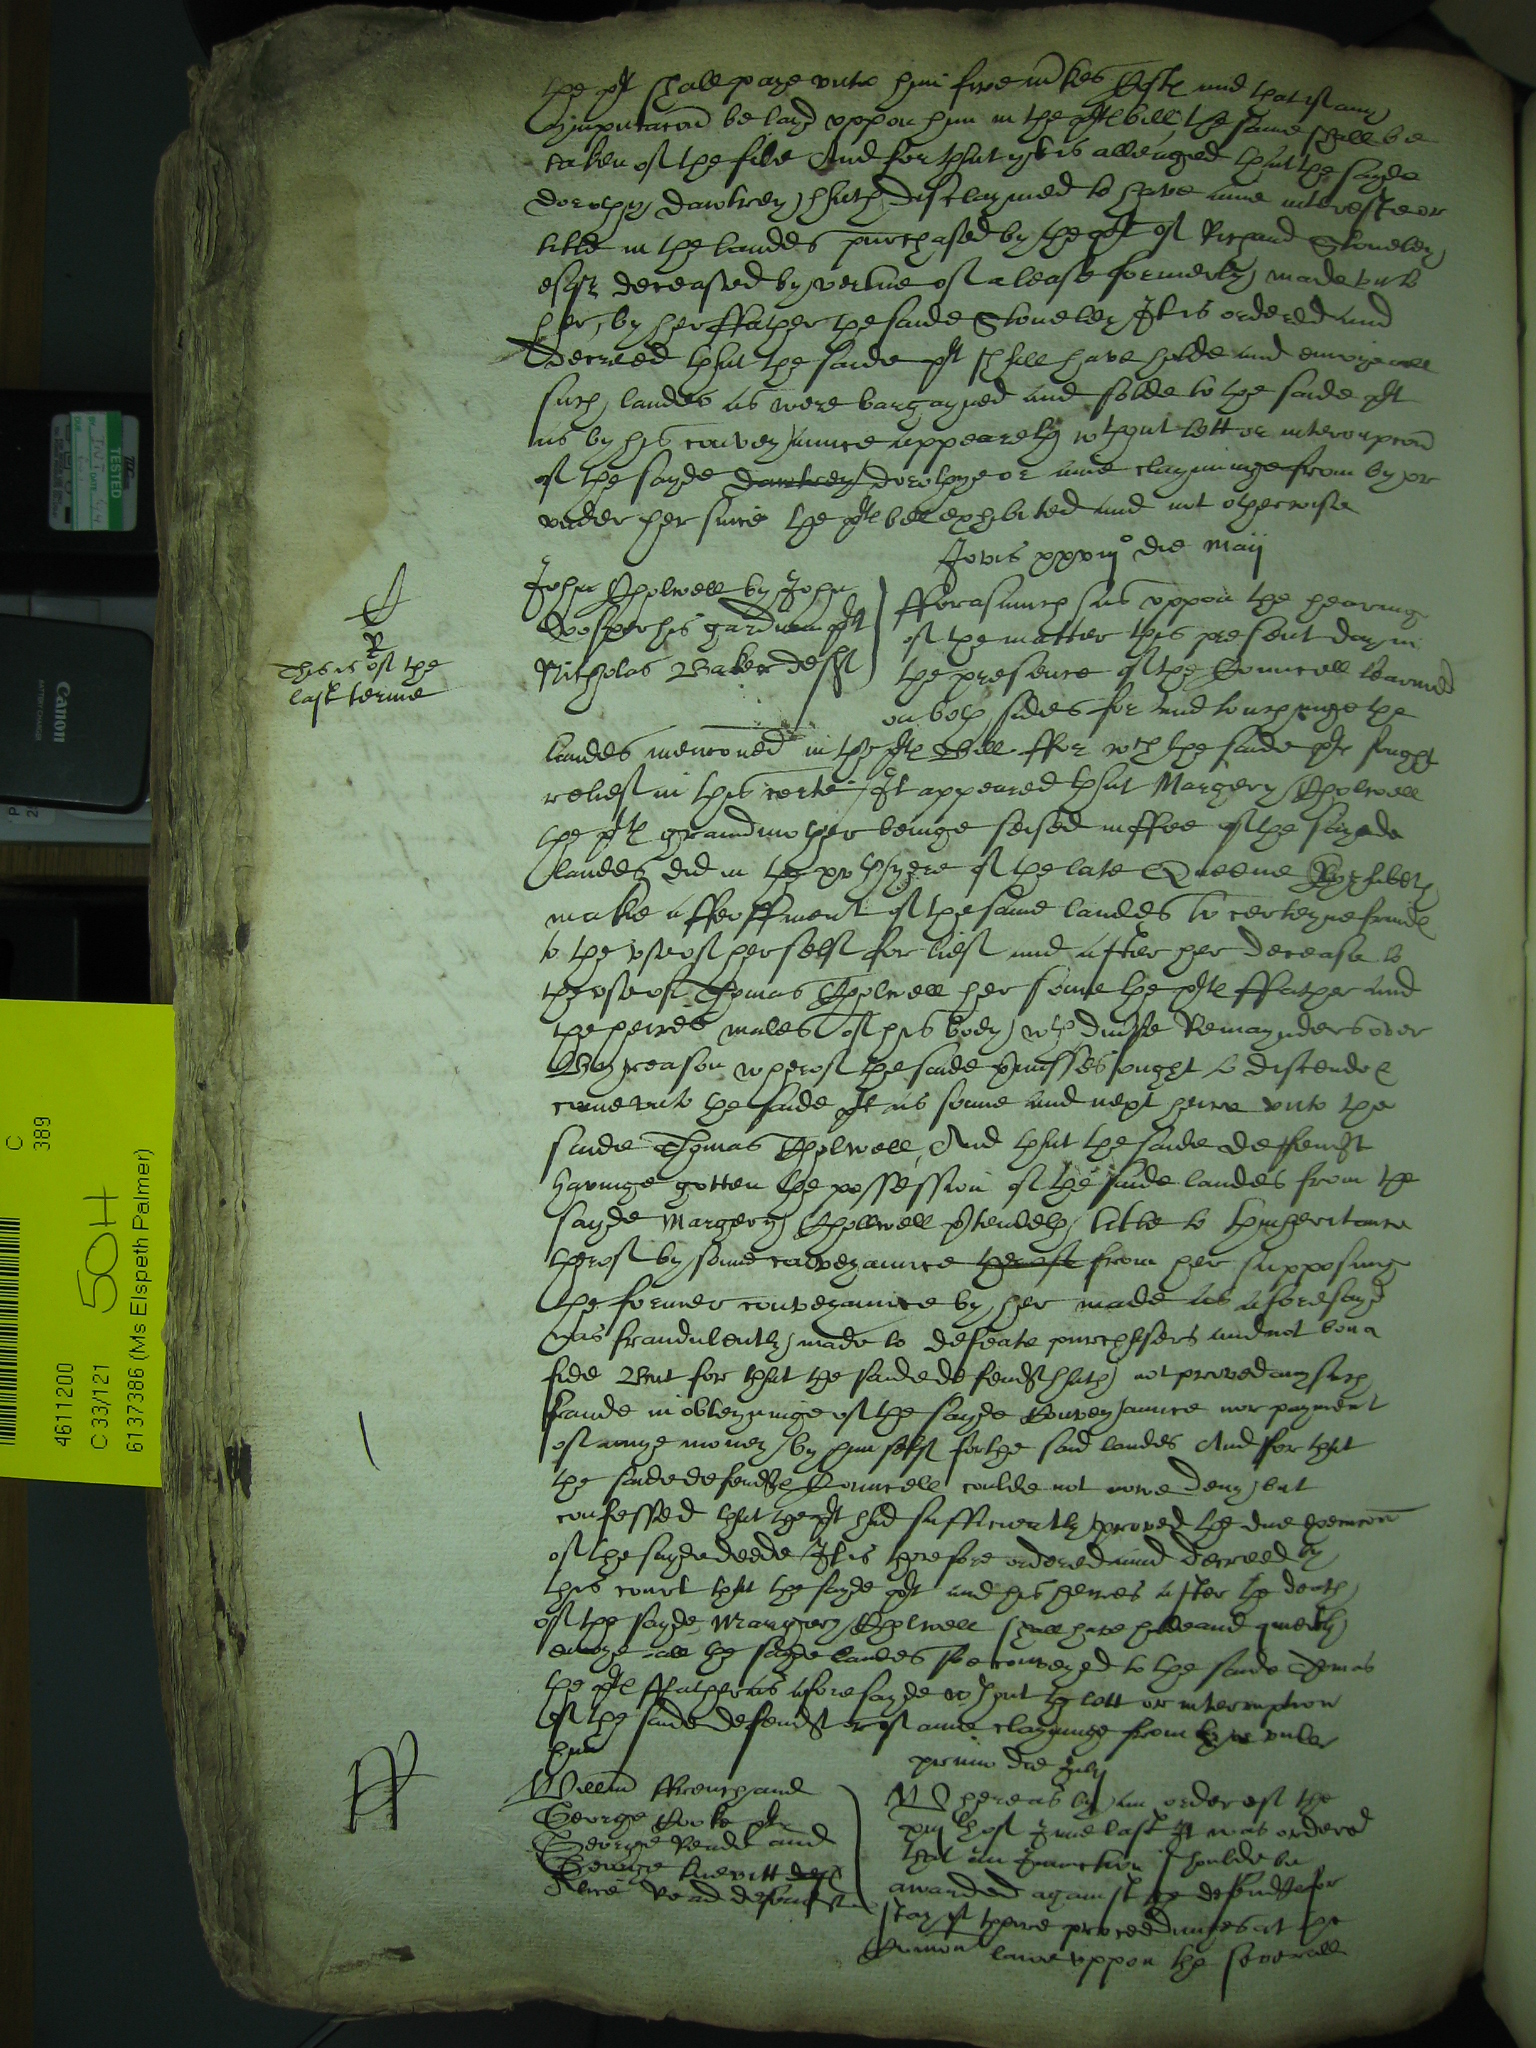 the plt shall paye unto him five m'kes Costs and that if any
ymputacon be layd uppon him in the plts bill, the same shall be
taken of the file And for that yt is alleaged that the sayde
Dorothy Dawtrey hath disclaymed to have anie intereste or
title in the landes purchased by the plt of Richard Stoneley
esqr deceased by vertue of a lease formerly made unto
her, by her ffather the saide Stoneley It is ordered and
decreed that the saide plt shall have holde and enioye all
such landes as were bargayned and solde to the saide plt
as by his conveyaunce appeareth wthout lett or interrupcon
of the sayde Dawtrey Dorothye or anie clayminge from by or
under her since the plts bill exhibited and not otherwise
Jovis xxviijo die Maij
John Cholwell by John
Vosper his gardian plt
Nicholas Baker deft
fforasmuch as uppon the hearing
of the matter this present day in
the presence of the Councell learned
on both sides for and touchinge the
This is of the
last terme
landes menconed in the plts Bill ffor wch the saide plt sought
relief in this corte It appeared that Margery Cholwell
the plts grandmother beinge seised in ffee of the sayde
landes did in the xvth yere of the late Queene Elizabeth
make a ffeoffment of the same landes to certeyne frends
to the use of herself for lief and after her decease to
the use of Thomas Cholwell her sonne the plts ffather and
the heires males of his body wth divse Remaynders over
By reason wherof the saide pmisses ought to discende &
come unto the saide plt as sonne and next heire unto the
saide Thomas Cholwell, And that the saide deffendt
havinge gotten the possession of the saide landes from the
sayde Margery Chollwell ptendeth title to thinheritance
therof by some conveyaunce therof from her supposing
the former conveyaunce by her made as aforesayd
was fraudulently made to defeate purchasers and not bona
fide But for that the saide defendt hath not proved any such
fraude in obteyninge of the sayde Conveyaunce nor payment
of anye money by him self for the said landes And for that
the saide defendts Councell coulde not nowe deny but
confessed that the plt had sufficiently proved the due execucon
of the sayde deede It is therefore ordered and decreed by
this court that the sayde plt and his heires after the death
of the sayde Margery Cholwell shall have holde and quietly
enioye all the sayde landes soe conveyed to the saide Thomas
the plts ffather as aforesayde wthout the lett or interruption
of the saide defendt or of anie clayminge from by or under
him
primo die July
Willm ffrench and
George Cooke plts
George Reade and
George Knevitt deft
Alice Read defendts
Whereas by an order of the
xiijth of June last It was ordered
that an Iniunction shoulde be
awarded against the defendts for
stay of theire proceedinges at the
Comon lawe uppon the severall
TESTED
Canon
BATTERY CHARGER
C
389
50H
4611200
C 33/121
6137386 (Ms Elspeth Palmer)